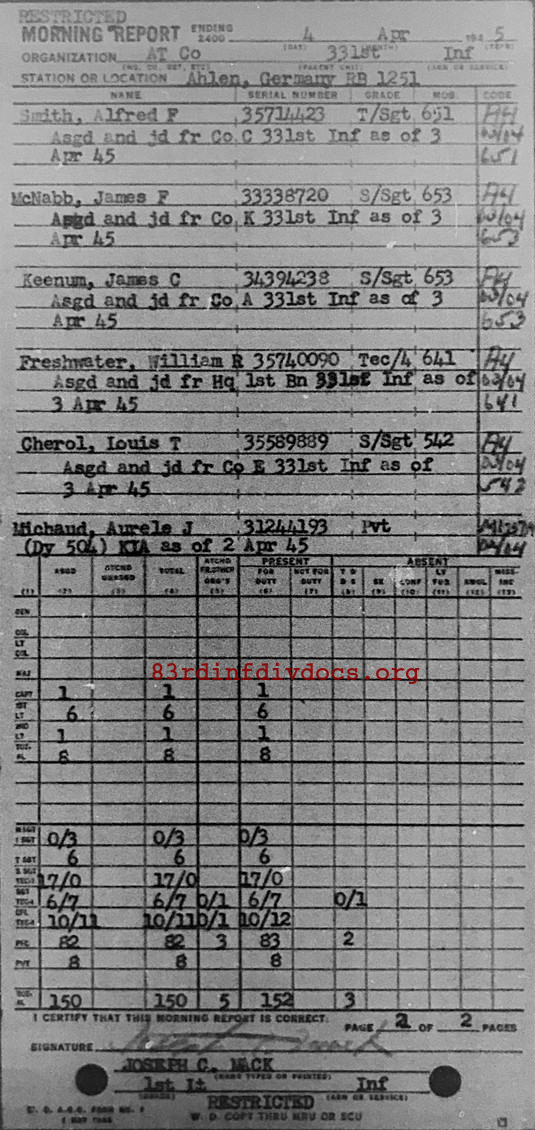 RESTRICTED
MORNING REPORT ENDING 2400 4 Apr 194 5
ORGANIZATION AT Co 331st Inf
STATION OR LOCATION Ahlen, Germany RB 1251
NAME SERIAL NUMBER GRADE MOS. CODE
Smith, Alfred F 35714423 T/Sgt 651
Asgd and jd fr Co C 331st Inf as of 3
Apr 45 651
McNabb, James F 33338720 S/Sgt 653
Asgd and jd fr Co K 331st Inf as of 3
Apr 45 653
Keenum, James C 34394238 S/Sgt 653
Asgd and jd fr Co A 331st Inf as of 3
Apr 45 653
Freshwater, William R 35740090 Tec/4 641
Asgd and jd fr Hq 1st Bn 331st Inf as of
3 Apr 45 641
Cherol, Louis T 35589889 S/Sgt 542
Asgd and jd fr Co E 331st Inf as of
3 Apr 45 542
Michaud, Aurele J 31244193 Pvt
(Dy 504) KIA as of 2 Apr 45
PRESENT ABSENT
ASGD TOTAL FOR DUTY NOT FOR DUTY SK CONF
(1) (2) (3) (4) (5) (6) (7) (8) (9) (10) (11) (12) (13)
GEN
COL
LT COL
MAJ
83rdinfdivdocs.org
CAPT 1 1 1
1ST LT 6 6 6
2ND LT 1 1 1
TOT-AL 8 8 8
0/3 0/3 0/3
T SGT 6 6 6
17/0 17/0 17/0
6/7 6/7 0/1 6/7 0/1
10/11 10/11 0/1 10/12
PFC 82 82 3 83 2
PVT 8 8 8
TOT-AL 150 150 5 152 3
I CERTIFY THAT THIS MORNING REPORT IS CORRECT:
PAGE 2 OF 2 PAGES
SIGNATURE
JOSEPH C. MACK
(NAME TYPED OR PRINTED)
1st Lt Inf
(GRADE) (ARM OR SERVICE)
RESTRICTED
W. D. COPY THRU MRU OR SCU
W. D. A.G.O. FORM NO. 1